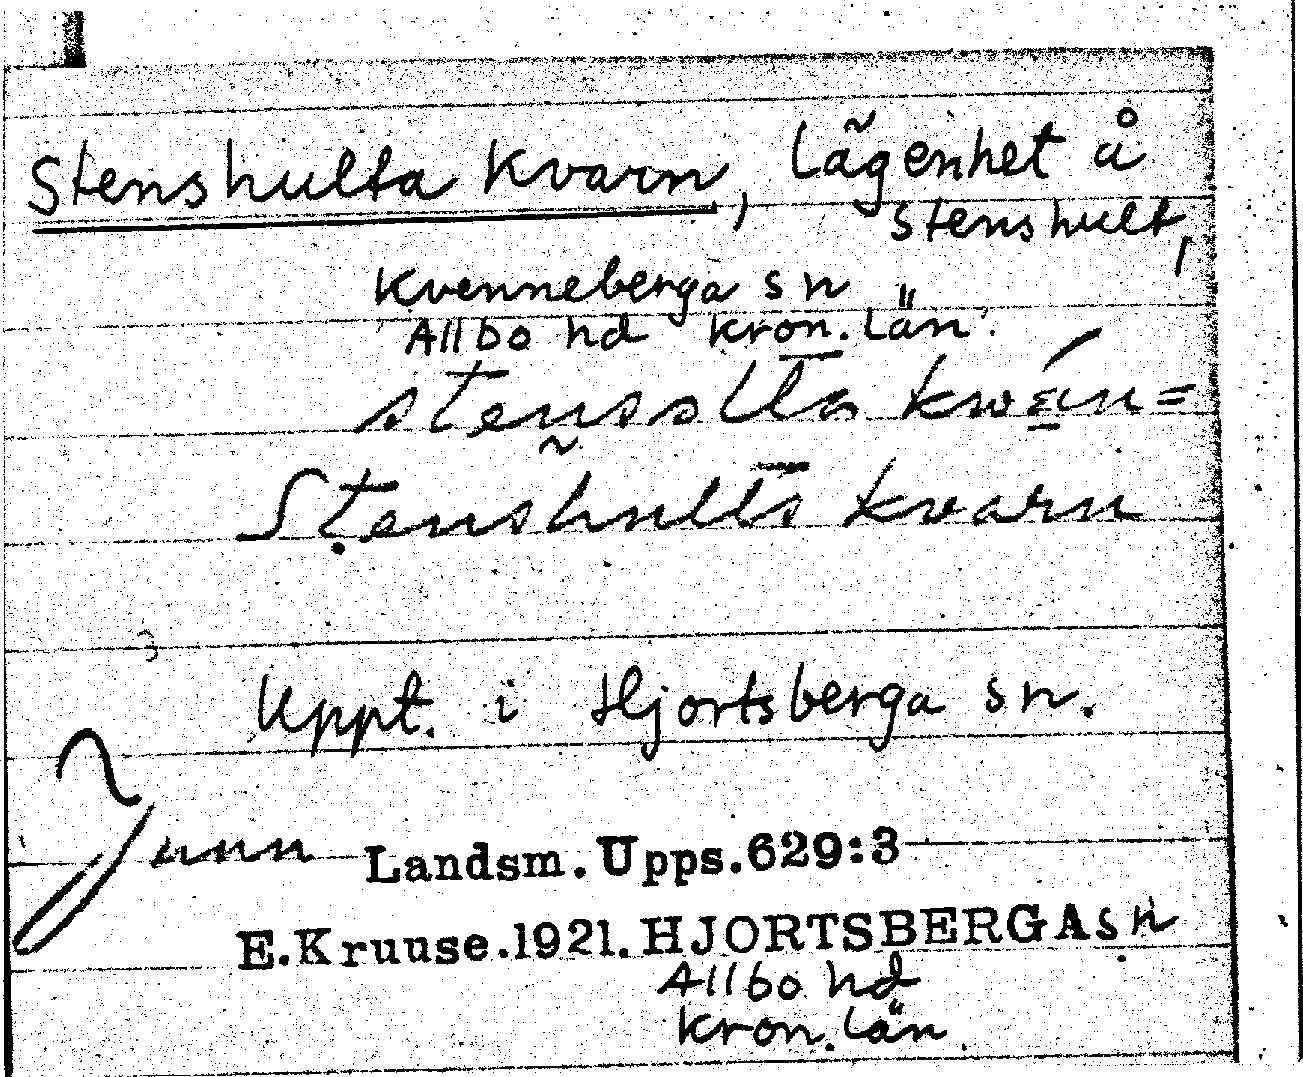 Stenshulta Kvarn, Lägenhet å
Stenshult,
Kvenneberga sn
Allbo hd Kron. Län.
Stenshults kvarn
Uppt. i Hjortsberga sn.
Landsm. Upps. 629:3
E. Kruuse. 1921. HJORTSBERGA sn
Allbo hd
Kron. Län